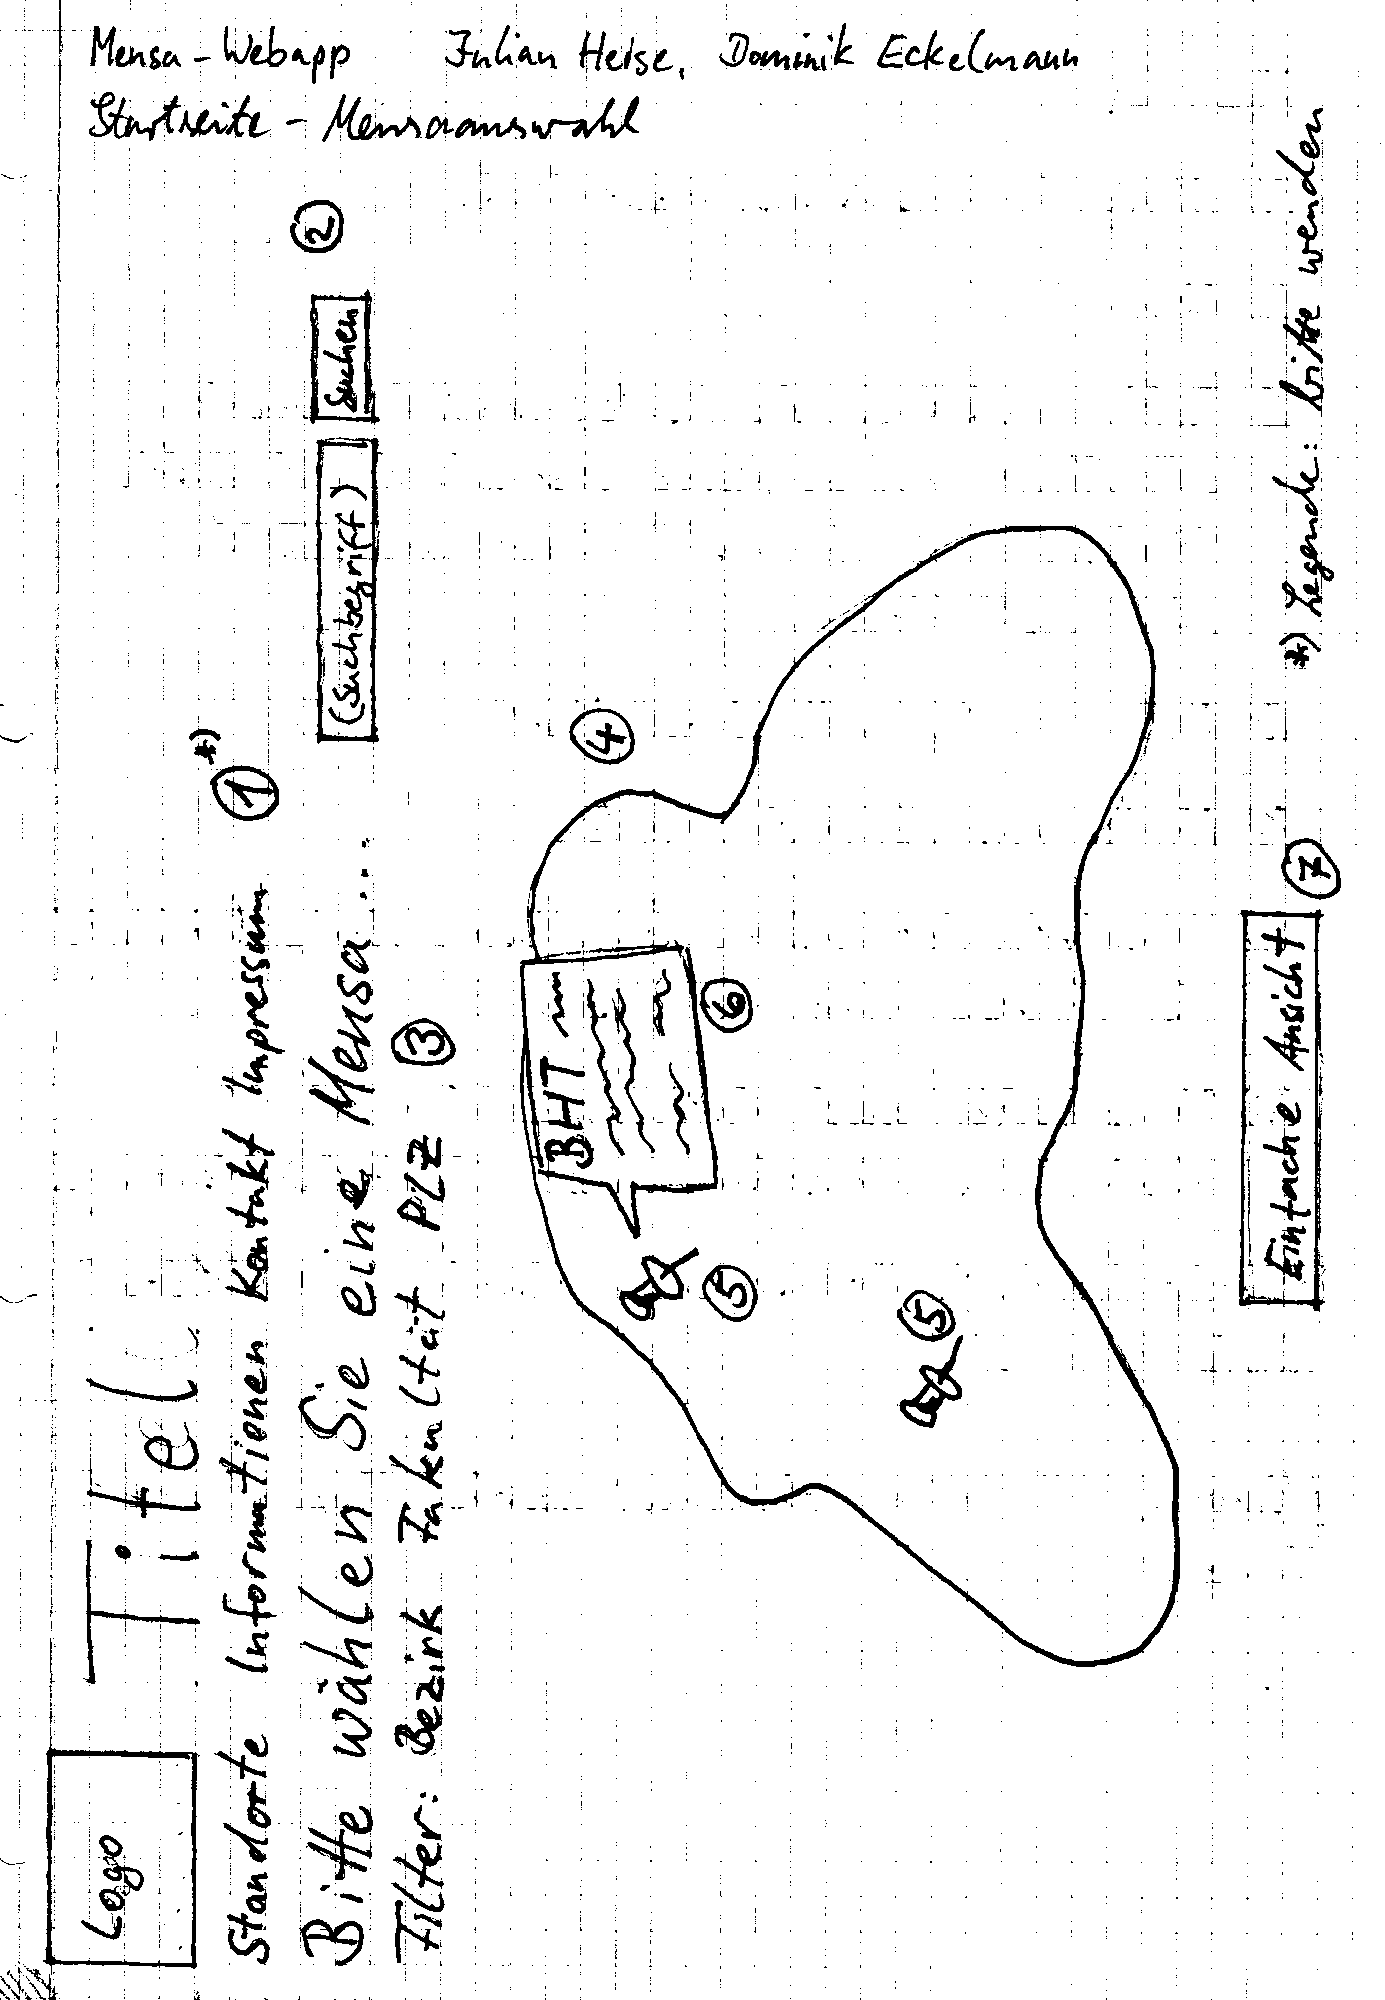 Mensa-Webapp Julian Heise, Dominik Eckelmann
Startseite - Mensaauswahl
Logo
Titel
Standorte Informationen Kontakt Impressum 1 *)
Bitte wählen Sie eine Mensa...
(Suchbegriff) Suchen 2
Filter: Bezirk Fakultät PLZ 3
4
BHT
6
5
5
Einfache Ansicht 7
*) Legende: bitte wenden